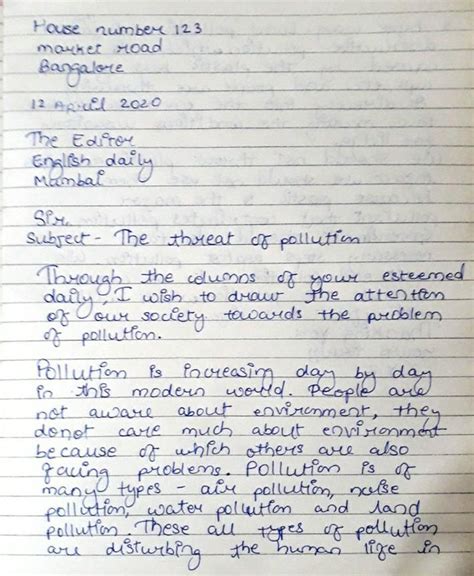 House number 123
market road
Bangalore
12 April 2020
The Editor
English daily
Mumbai
Sir,
Subject - The threat of pollution
Through the columns of your esteemed
daily, I wish to draw the attention
of our society towards the problem
of pollution.
Pollution is increasing day by day
in this modern world. People are
not aware about environment, they
donot care much about environment
because of which others are also
facing problems. Pollution is of
many types - air pollution, noise
pollution, water pollution and land
pollution. These all types of pollution
are disturbing the human life in